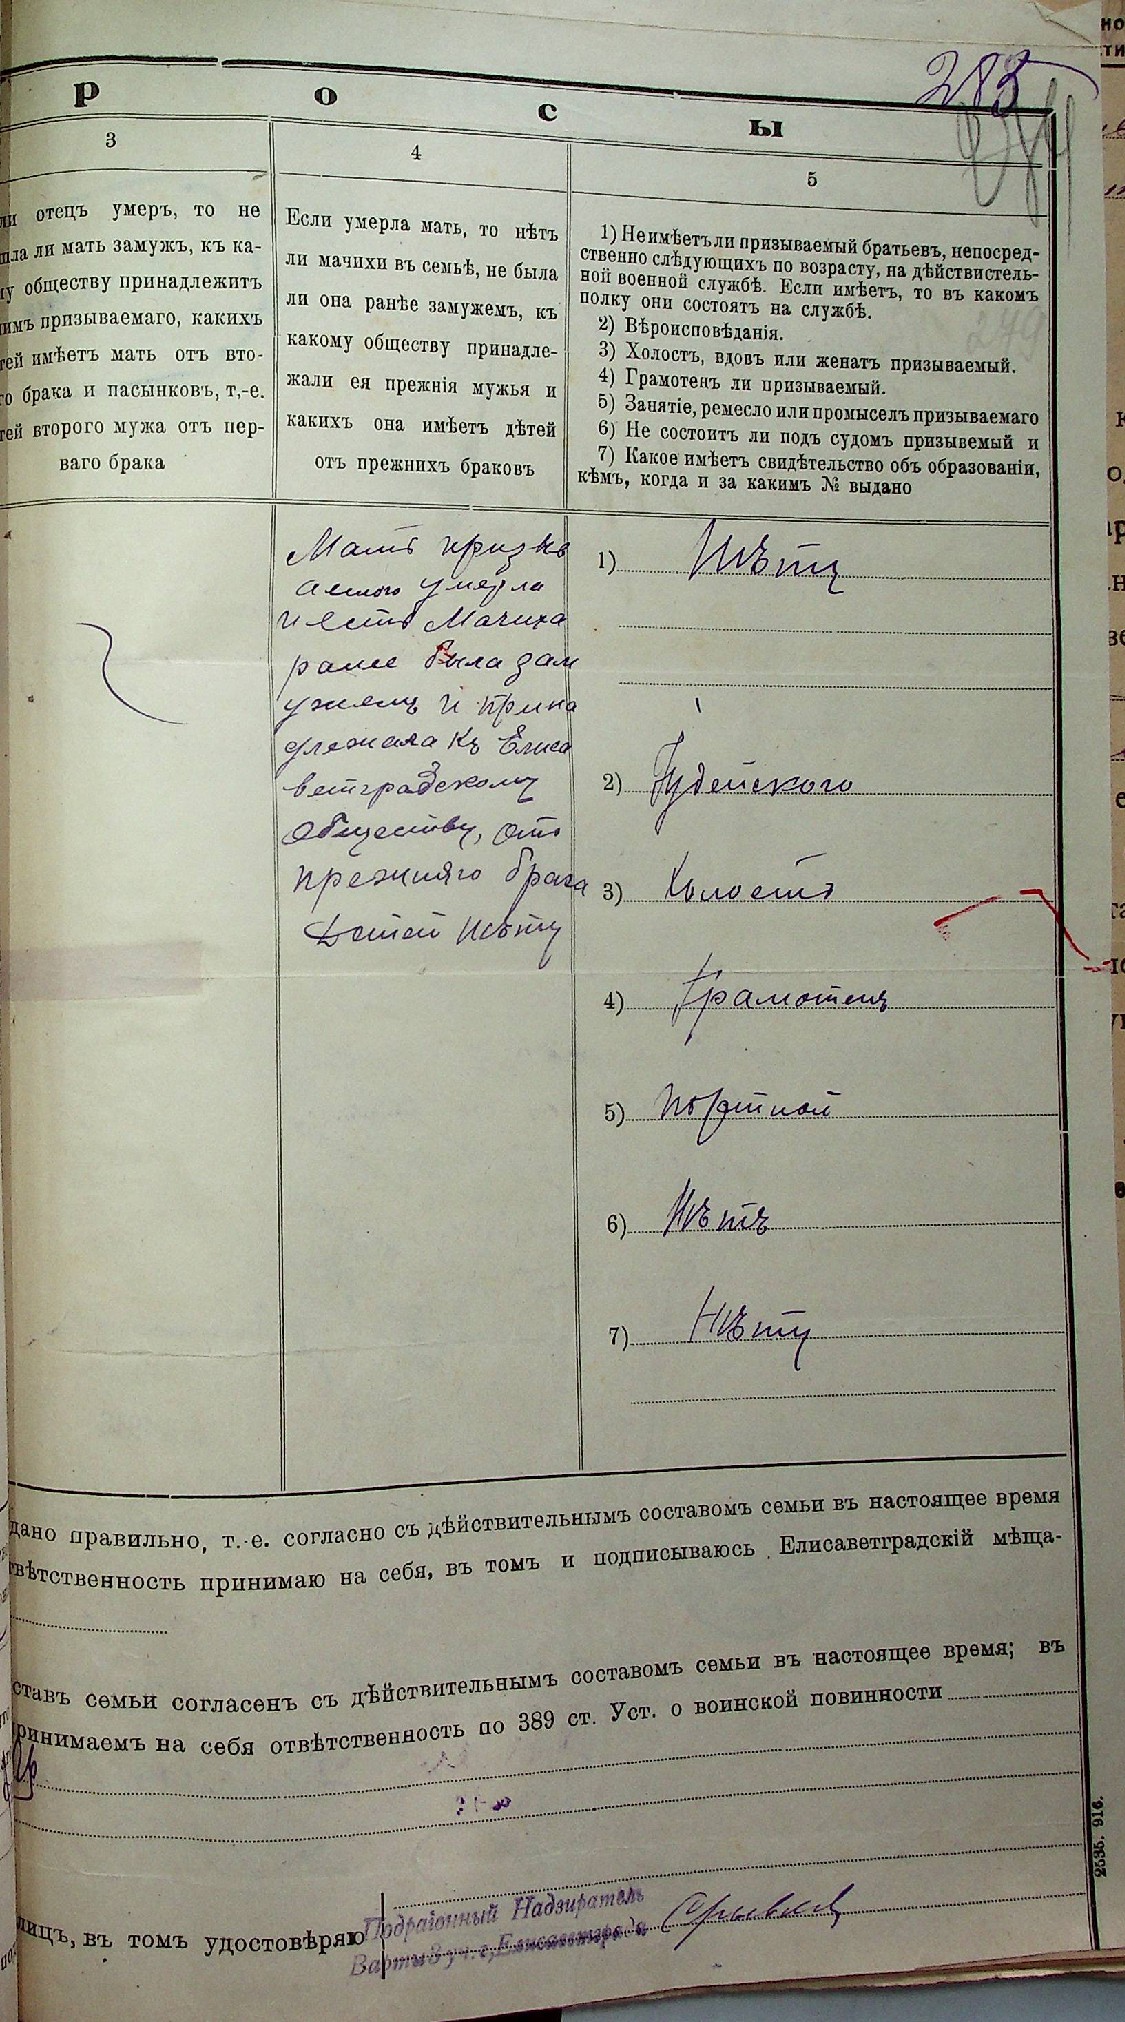 283
р о с ы
3
ли отецъ умеръ, то не
шла ли мать замужъ, къ ка-
му обществу принадлежитъ
имъ призываемаго, какихъ
тей имѣетъ мать отъ вто-
го брака и пасынковъ, т,-е.
тей второго мужа отъ пер-
ваго брака
4
Если умерла мать, то нѣтъ
ли мачихи въ семьѣ, не была
ли она ранѣе замужемъ, къ
какому обществу принадле-
жали ея прежнія мужья и
какихъ она имѣетъ дѣтей
отъ прежнихъ браковъ
5
1) Неимѣетъли призываемый братьевъ, непосред-
ственно слѣдующихъ по возрасту, на дѣйствитель-
ной военной службѣ. Если имѣетъ, то въ какомъ
полку они состоятъ на службѣ.
279
2) Вѣроисповѣданія.
3) Холостъ, вдовъ или женатъ призываемый.
4) Грамотенъ ли призываемый.
5) Занятіе, ремесло или промыселъ призываемаго
6) Не состоитъ ли подъ судомъ призывемый и
7) Какое имѣетъ свидѣтельство объ образованіи,
кѣмъ, когда и за какимъ № выдано
Мать призыв
аемого умерла
и есть Мачиха
ранее была зам
ужемъ и прина
длежала къ Елиса
ветградскому
обществу, отъ
прежняго брака
Детей нѣтъ
1) Нѣтъ
2) Іудейского
3) Холостъ
4) Грамотенъ
5) портной
6) Нѣтъ
7) Нѣтъ
дано правильно, т.-е. согласно съ дѣйствительнымъ составомъ семьи въ настоящее время
вѣтственность принимаю на себя, въ томъ и подписываюсь Елисаветградскій мѣща-
ставъ семьи согласенъ съ дѣйствительнымъ составомъ семьи въ настоящее время; въ
ринимаемъ на себя отвѣтственность по 389 ст. Уст. о воинской повинности
лицъ, въ томъ удостовѣряю
Подраіонный Надзиратель
Варты 3 уч. г. Елисаветграда
2535. 916.